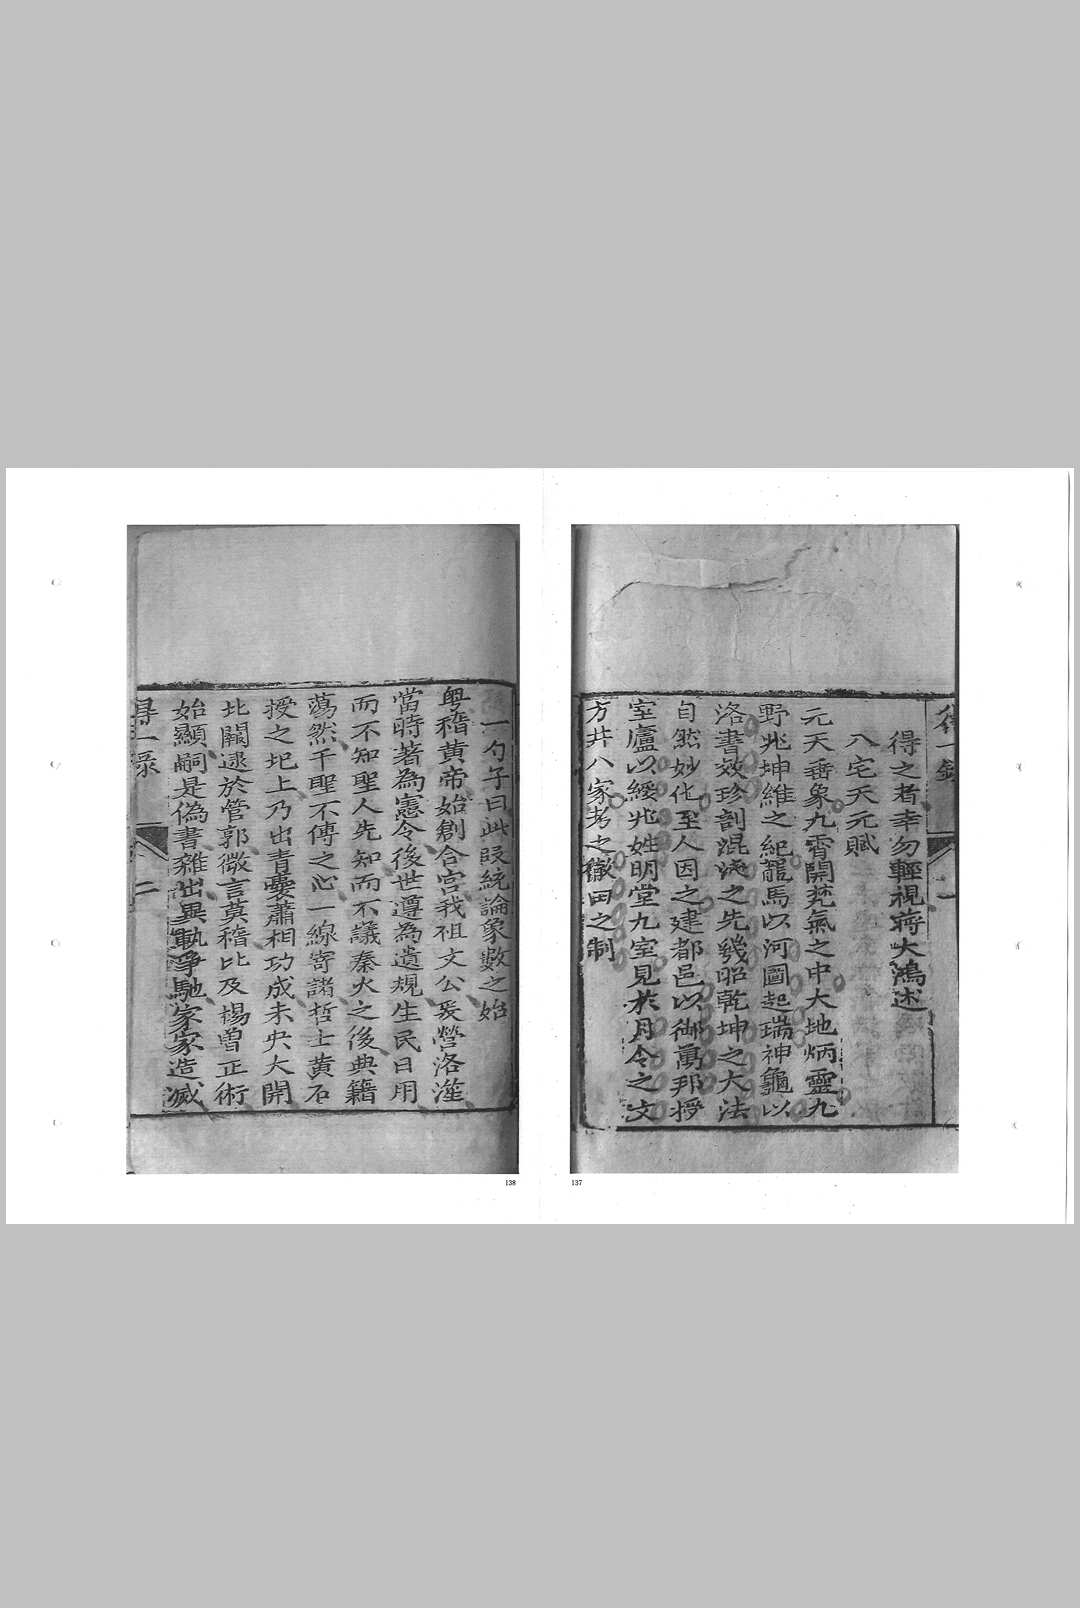 得一錄
一
得之者幸勿輕視蔣大鴻述
八宅天元賦
元天垂象九霄開梵氣之中大地炳靈九
野兆坤維之紀龍馬以河圖起瑞神龜以
洛書效珍剖混沌之先幾昭乾坤之大法
自然妙化至人因之建都邑以御萬邦授
室廬以綏兆姓明堂九室見於月令之文
方井八家考之徹田之制
137
一勺子曰此段統論象數之始
粵稽黃帝始創合宮我祖文公爰營洛瀍
當時著為憲令後世遵為遺規生民日用
而不知聖人先知而不議秦火之後典籍
蕩然千聖不傳之心一線寄諸哲士黃石
授之圯上乃出青囊蕭相功成未央大開
北闕逮於管郭微言莫稽比及楊曾正術
始顯嗣是偽書雜出異軌爭馳家家造滅
得一錄
二
138